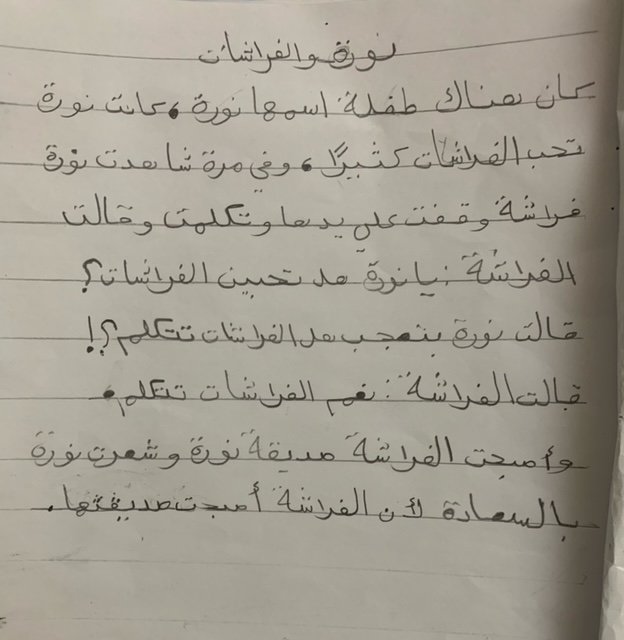 نورة والفراشات
كان هناك طفلة اسمها نورة، كانت نورة
تحب الفراشات كثيرًا، وفي مرة شاهدت نورة
فراشة وقفت على يدها وتكلمت وقالت
الفراشة: يا نورة هل تحبين الفراشات؟
قالت نورة بتعجب هل الفراشات تتكلم؟!
قالت الفراشة: نعم الفراشات تتكلم.
وأصبحت الفراشة صديقة نورة وشعرت نورة
بالسعادة لأن الفراشة أصبحت صديقتها.